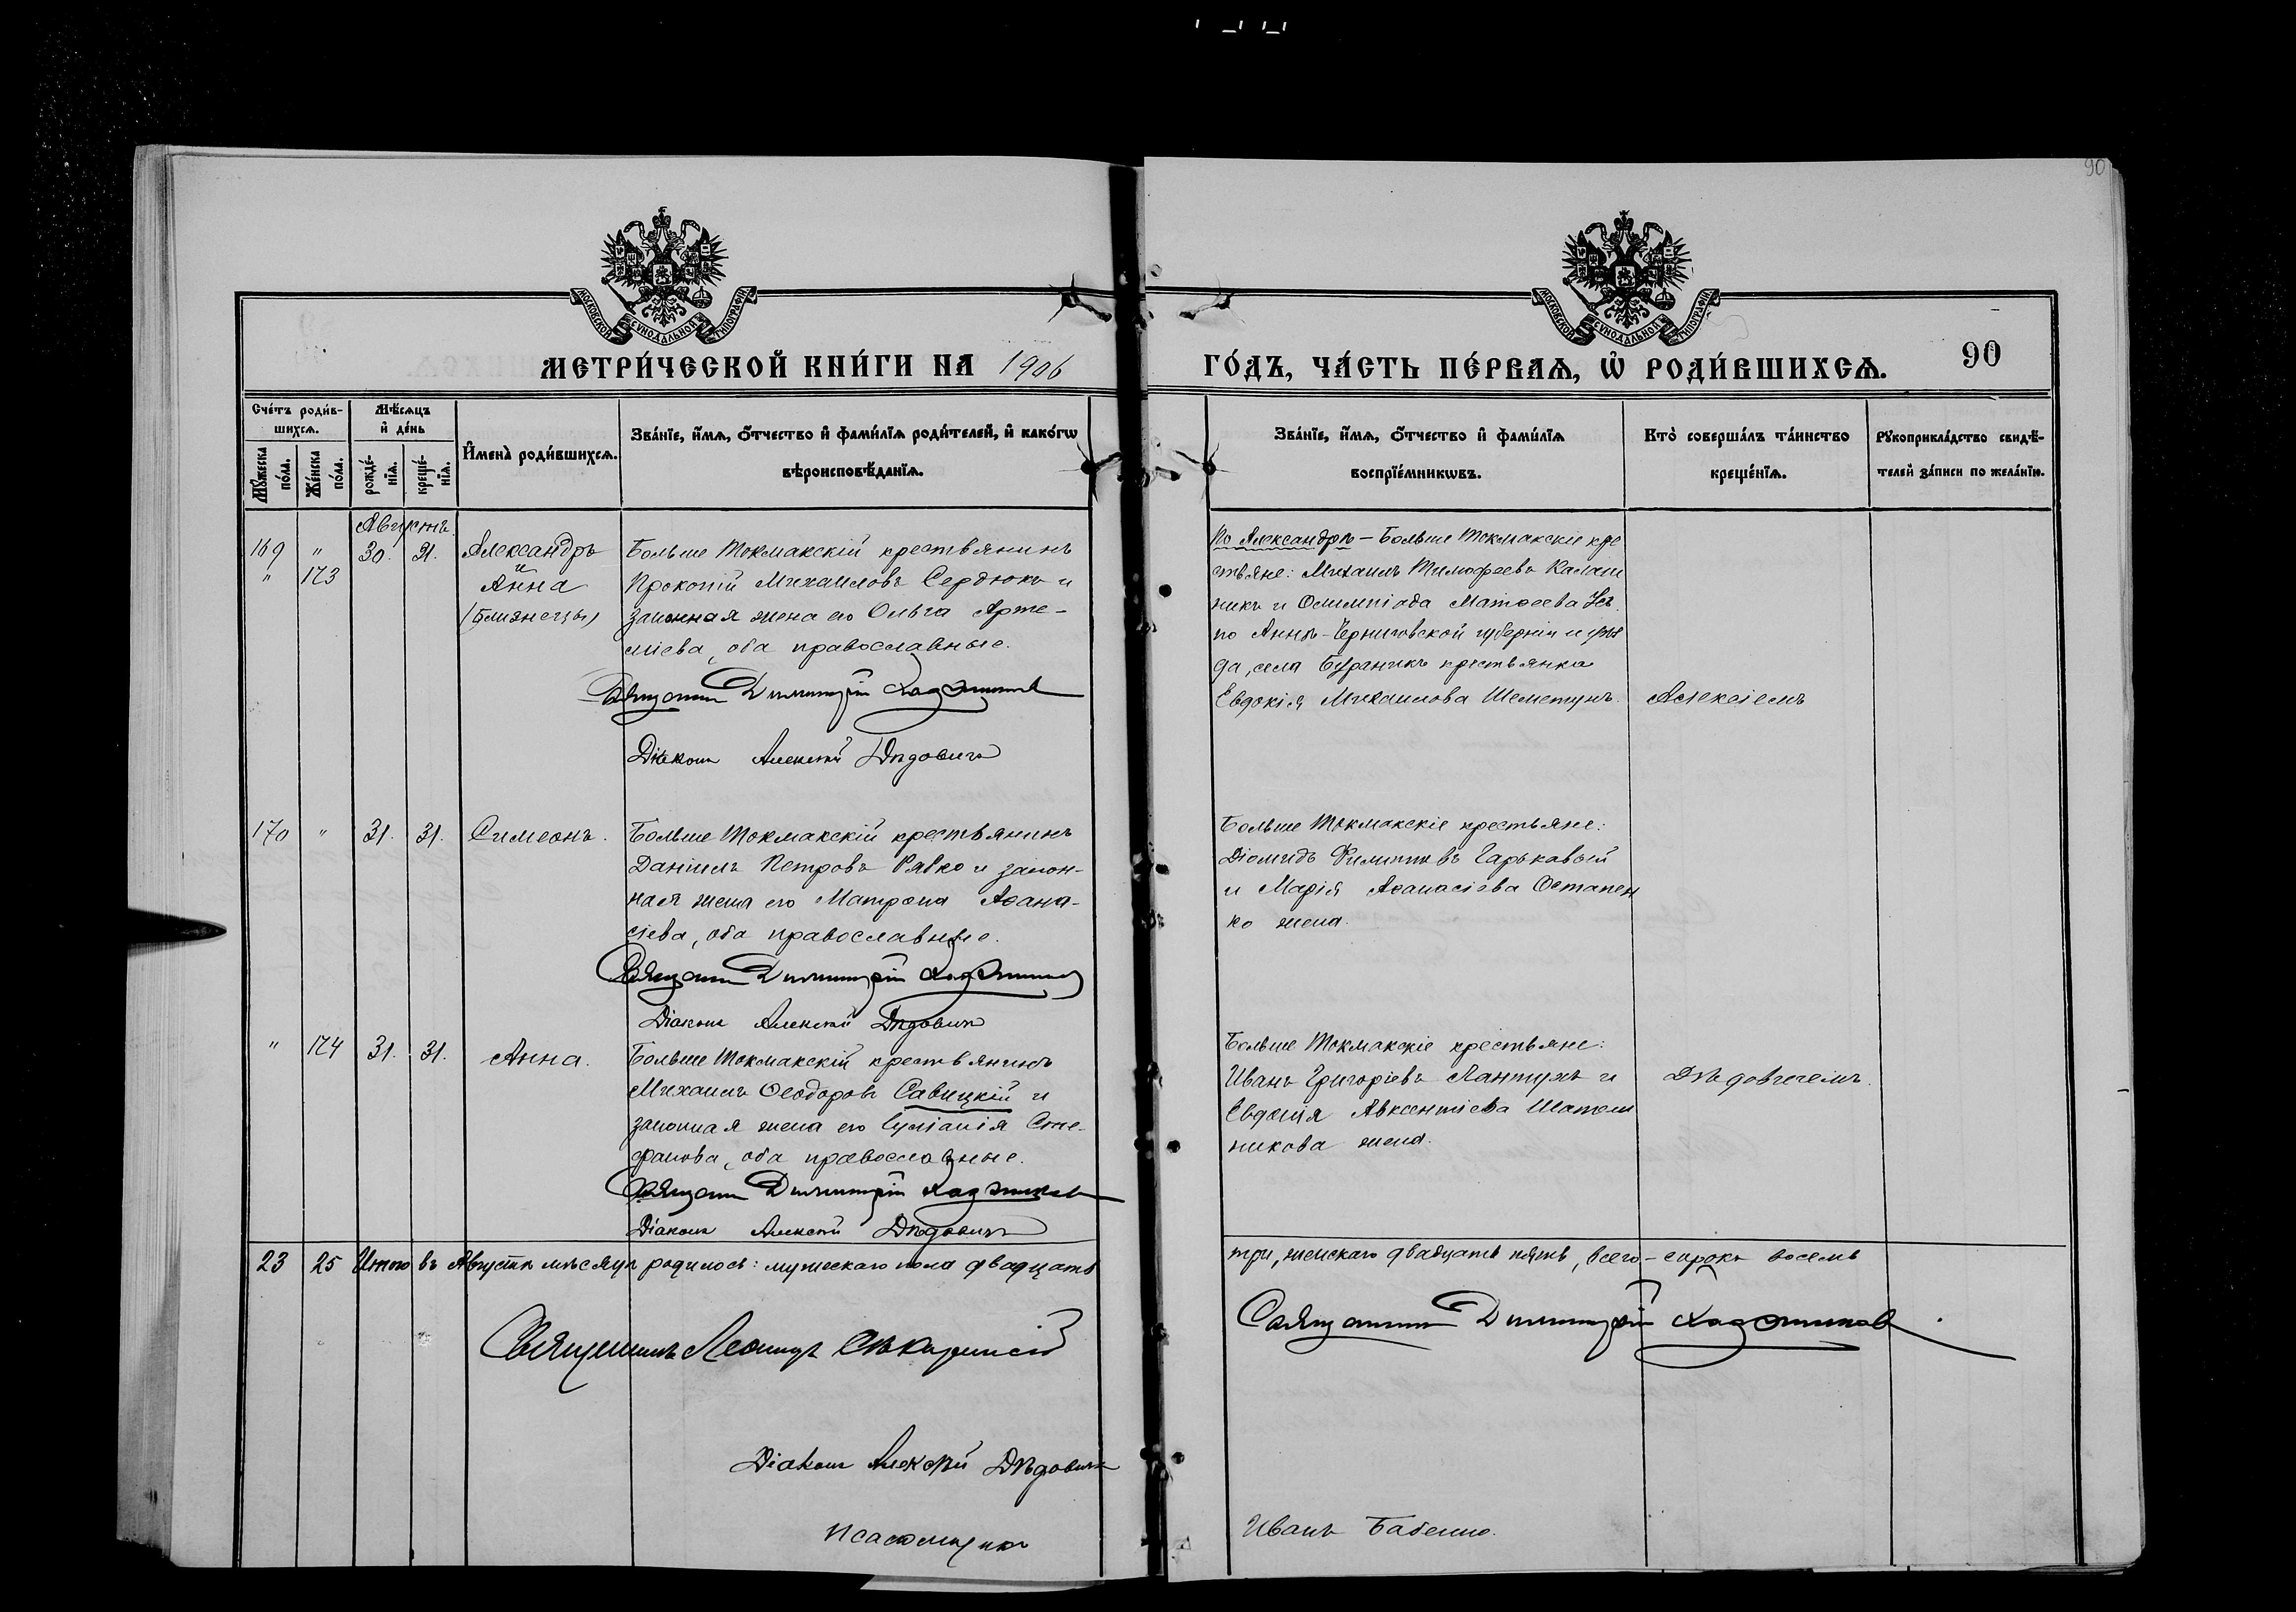 90
МОСКОВСКОЙ СѴНОДАЛЬНОЙ ТИПОГРАФІИ
МОСКОВСКОЙ СѴНОДАЛЬНОЙ ТИПОГРАФІИ
МЕТРИ́ЧЕСКОЙ КНИ́ГИ НА 1906
ГО́ДЪ, ЧА́СТЬ ПЕ́РВАѦ, Ѡ҆ РОДИ́ВШИХСѦ. 90
Сче́тъ роди́в-
шихсѧ.
Мѣ́сѧцъ
и҆ де́нь
Мꙋ́жеска
по́ла.
Же́нска
по́ла.
рожде́-
нїѧ.
креще́-
нїѧ.
И҆мена̀ роди́вшихсѧ.
Зва́нїе, и҆́мѧ, ѻ҆́тчество и҆ фами́лїѧ роди́телей, и҆ како́гѡ
вѣроисповѣ́данїѧ.
Зва́нїе, и҆́мѧ, ѻ҆́тчество и҆ фами́лїѧ
воспрїе́мникѡвъ.
Кто̀ соверша́лъ та́инство
креще́нїѧ.
Рꙋкоприкла́дство свидѣ́-
телей за́писи по жела́нїю.
Августъ.
169 " 30. 31. Александръ
" 173 и
Анна
(близнецы)
Больше Токмакскій крестьянинъ
Прокопій Михаиловъ Сердюкъ и
законная жена его Ольга Арте-
міева, оба православные.
Священникъ Димитрій
Діаконъ Алексій Дѣдовичъ
По Александрѣ – Больше Токмакскіе кре
стьяне: Михаилъ Тимофеевъ Калаш
никъ и Олимпіада Матѳеева
по Аннѣ – Черниговской губерніи и уѣз
да, села крестьянка
Евдокія Михаилова Шеметунъ.
Алексіемъ
170 " 31. 31. Симеонъ.
Больше Токмакскій крестьянинъ
Даніилъ Петровъ Рябко и закон-
ная жена его Матрона Аѳана-
сіева, оба православные.
Священникъ Димитрій
Діаконъ Алексій Дѣдовичъ
Больше Токмакскіе крестьяне:
Діомидъ Филипповъ Гарькавый
и Марія Аѳанасіева Остапен
ко жена.
" 174 31. 31. Анна.
Больше Токмакскій крестьянинъ
Михаилъ Ѳеодоровъ Савицкій и
законная жена его Іуліанія Сте-
фанова, оба православные.
Священникъ Димитрій
Діаконъ Алексій Дѣдовичъ
Больше Токмакскіе крестьяне:
Иванъ Григоріевъ Лантухъ и
Евдокія Авксентіева Шапош
никова жена.
Дѣдовичемъ.
23 25 Итого въ Августѣ мѣсяцѣ родилось: мужескаго пола двадцать
три, женскаго двадцать пять, всего – сорокъ восемь
Священникъ Леонидъ
Священникъ Димитрій
Діаконъ Алексій Дѣдовичъ
Псаломщикъ
Иванъ Бабенко.